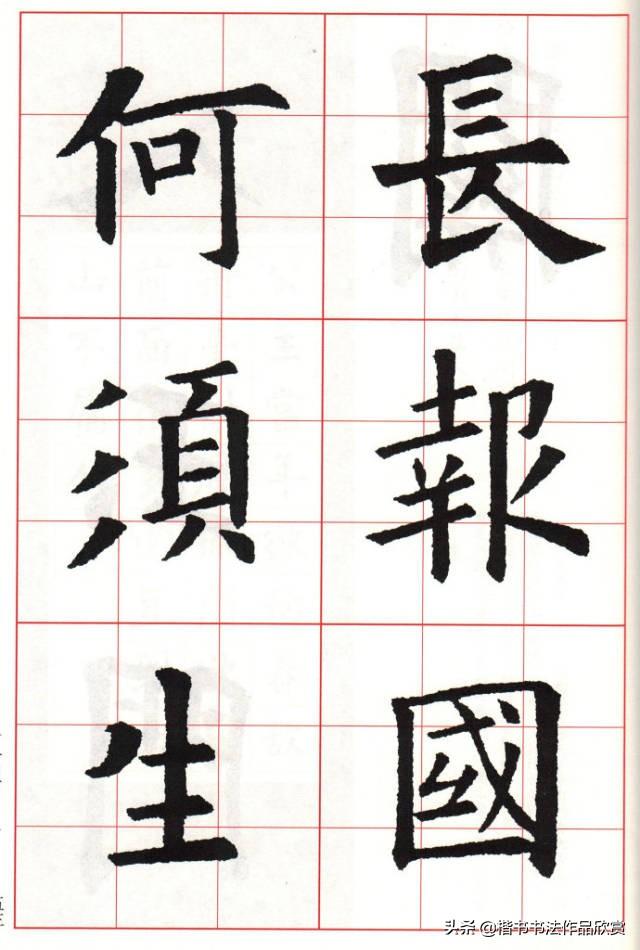 長報國
何須生
头条 @楷书书法作品欣赏